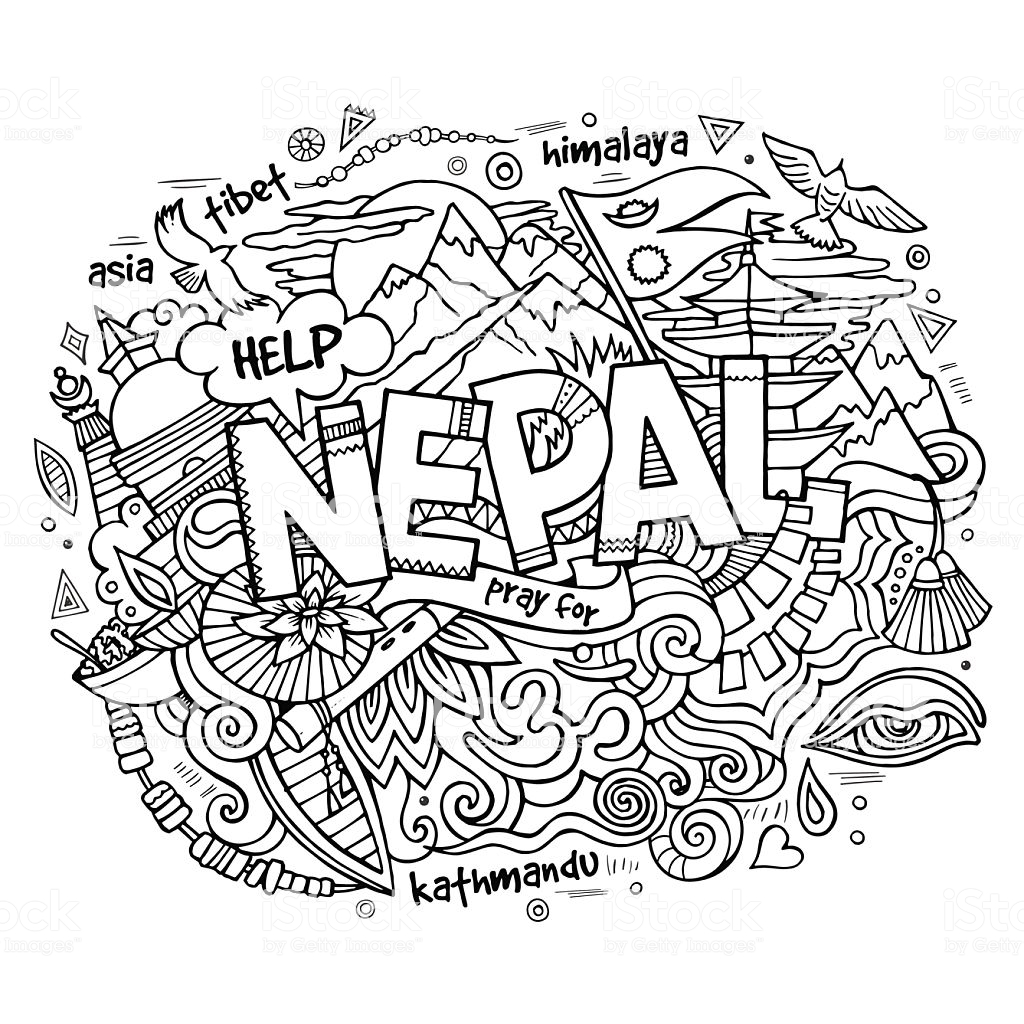 himalaya
tibet
asia
HELP
NEPAL
pray for
kathmandu
iStock
by Getty Images™